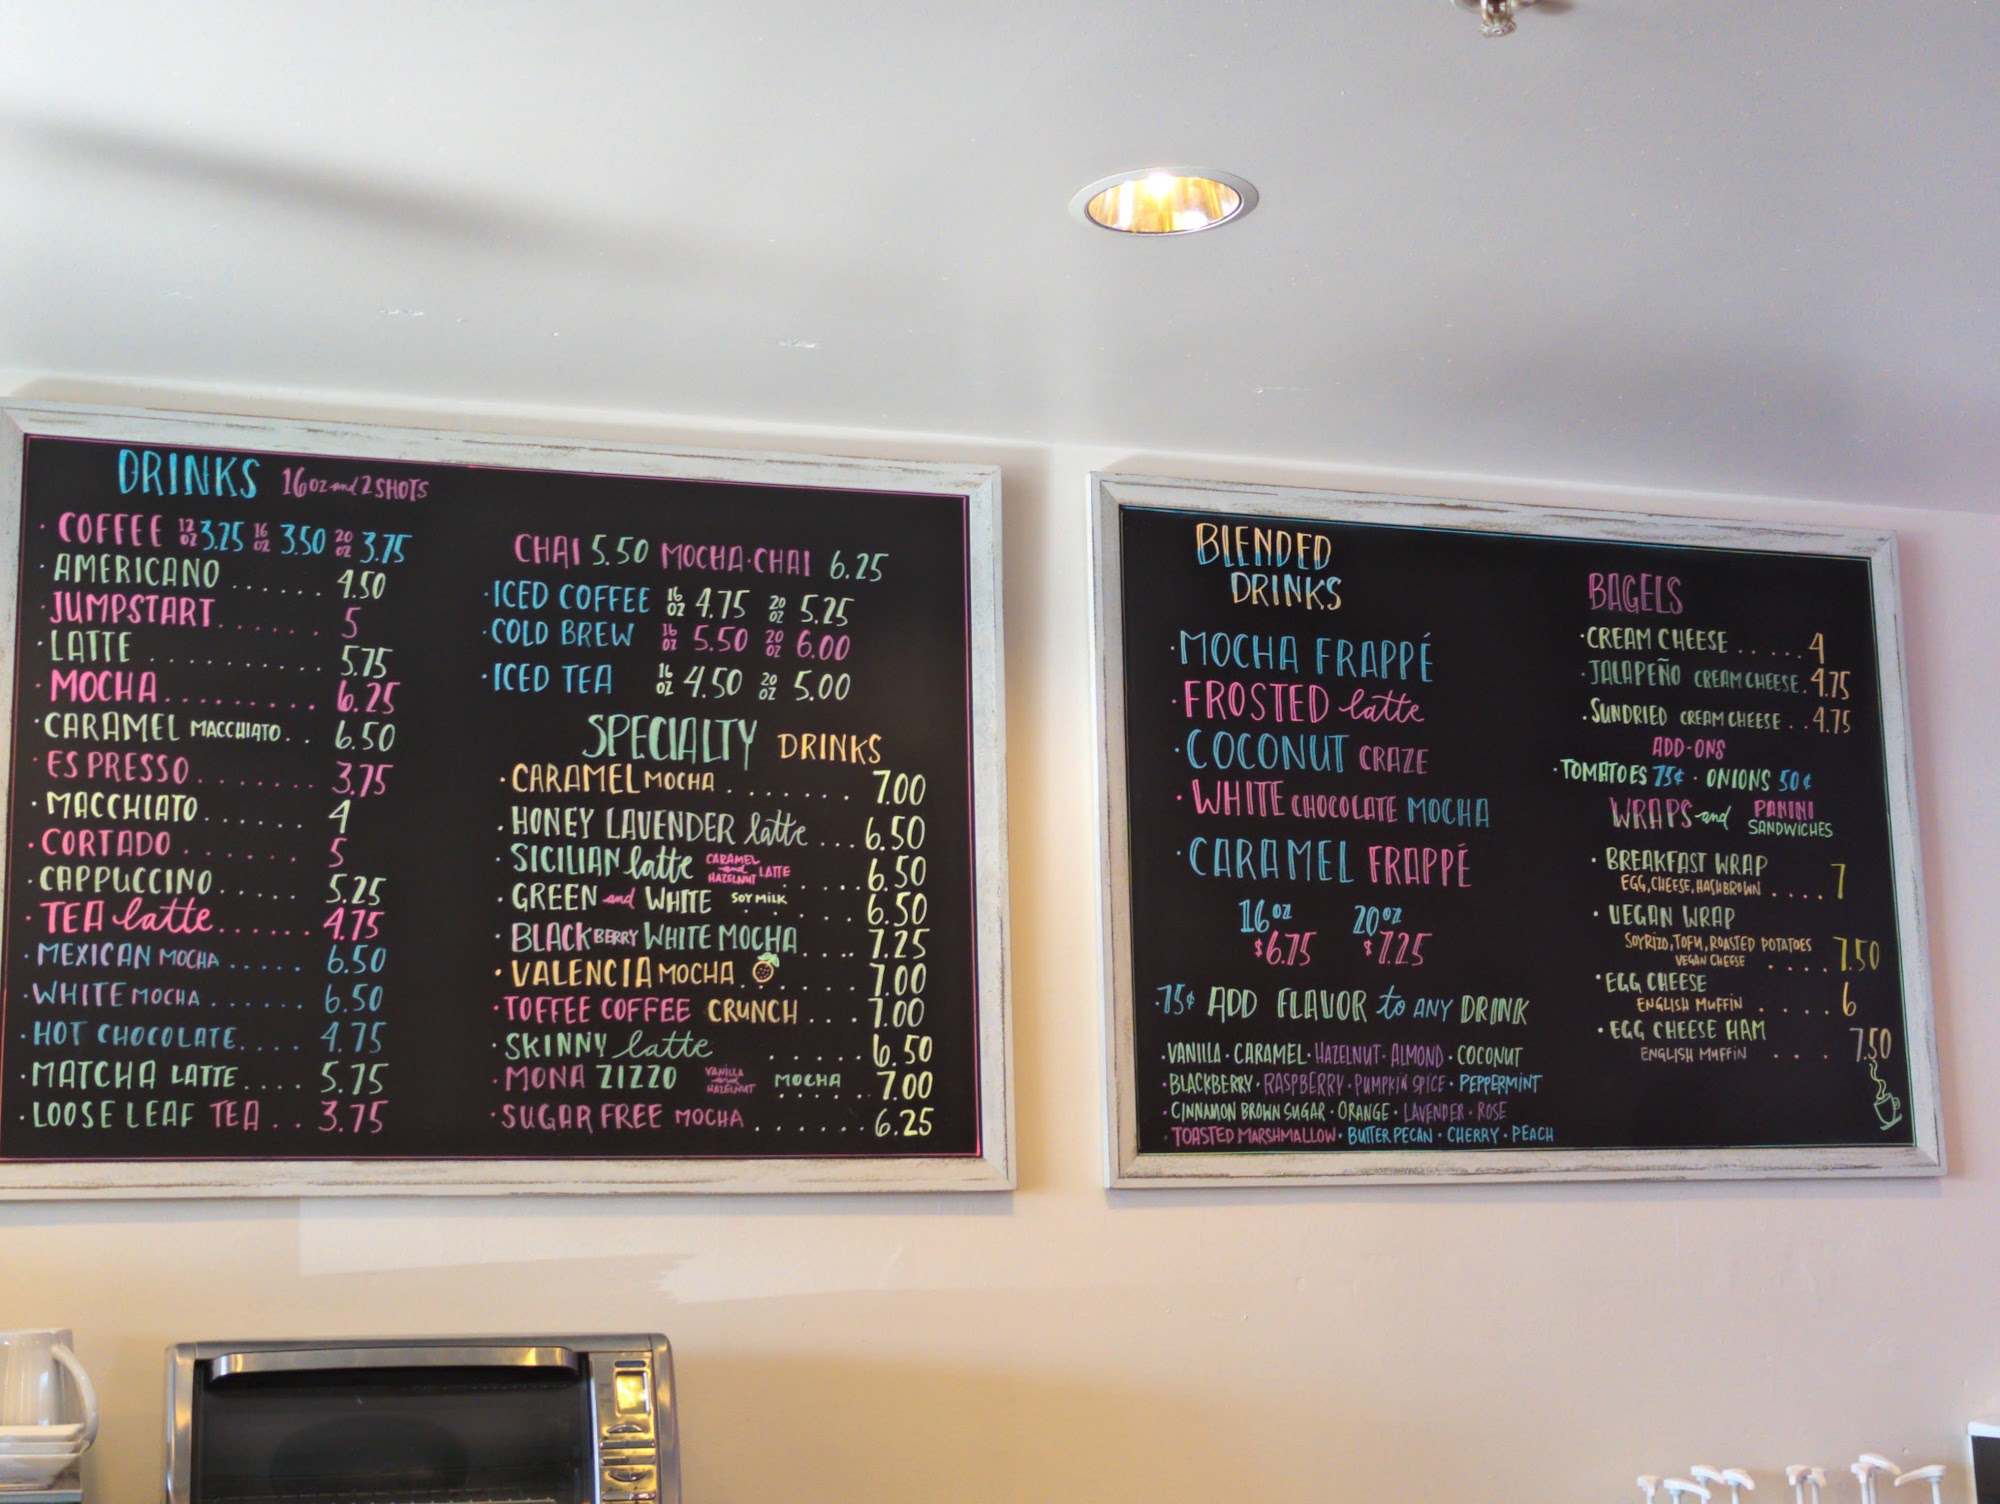 DRINKS 16oz and 2 SHOTS
· COFFEE 12 oz 3.25 16 oz 3.50 20 oz 3.75
· AMERICANO ...... 4.50
· JUMPSTART ...... 5
· LATTE .......... 5.75
· MOCHA ........ 6.25
· CARAMEL MACCHIATO .. 6.50
· ESPRESSO ....... 3.75
· MACCHIATO ...... 4
· CORTADO ...... 5
· CAPPUCCINO ..... 5.25
· TEA latte ...... 4.75
· MEXICAN MOCHA ..... 6.50
· WHITE MOCHA ..... 6.50
· HOT CHOCOLATE .... 4.75
· MATCHA LATTE .... 5.75
· LOOSE LEAF TEA .. 3.75
CHAI 5.50 MOCHA·CHAI 6.25
· ICED COFFEE 16 oz 4.75 20 oz 5.25
· COLD BREW 16 oz 5.50 20 oz 6.00
· ICED TEA 16 oz 4.50 20 oz 5.00
SPECIALTY DRINKS
· CARAMEL MOCHA ....... 7.00
· HONEY LAVENDER latte ... 6.50
· SICILIAN latte CARAMEL and HAZELNUT LATTE ..... 6.50
· GREEN and WHITE SOY MILK ..... 6.50
· BLACKBERRY WHITE MOCHA .... 7.25
· VALENCIA MOCHA ...... 7.00
· TOFFEE COFFEE CRUNCH ... 7.00
· SKINNY latte ..... 6.50
· MONA ZIZZO VANILLA and HAZELNUT MOCHA ..... 7.00
· SUGAR FREE MOCHA ....... 6.25
BLENDED
DRINKS
· MOCHA FRAPPÉ
· FROSTED latte
· COCONUT CRAZE
· WHITE CHOCOLATE MOCHA
· CARAMEL FRAPPÉ
16oz 20oz
$6.75 $7.25
· 75¢ ADD FLAVOR to ANY DRINK
· VANILLA · CARAMEL · HAZELNUT · ALMOND · COCONUT
· BLACKBERRY · RASPBERRY · PUMPKIN SPICE · PEPPERMINT
· CINNAMON BROWN SUGAR · ORANGE · LAVENDER · ROSE
· TOASTED MARSHMALLOW · BUTTER PECAN · CHERRY · PEACH
BAGELS
· CREAM CHEESE ..... 4
· JALAPEÑO CREAM CHEESE . 4.75
· SUNDRIED CREAM CHEESE .. 4.75
ADD-ONS
· TOMATOES 75¢ · ONIONS 50¢
WRAPS and PANINI SANDWICHES
· BREAKFAST WRAP
EGG, CHEESE, HASHBROWN .... 7
· VEGAN WRAP
SOYRIZO, TOFU, ROASTED POTATOES
VEGAN CHEESE .... 7.50
· EGG CHEESE
ENGLISH MUFFIN .... 6
· EGG CHEESE HAM
ENGLISH MUFFIN .... 7.50